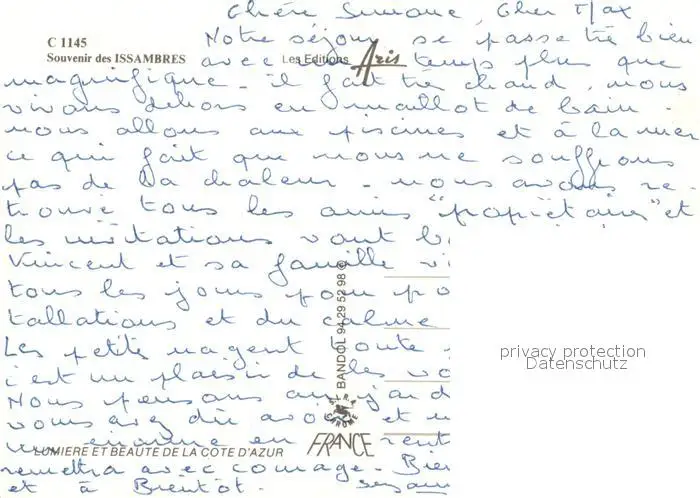 Chère Simone, Cher Max
C 1145
Notre séjour se passe très bien
Souvenir des ISSAMBRES
Les Editions Aris
avec un temps plus que
magnifique - il fait très chaud, nous
vivons dehors en maillot de bain.
nous allons aux piscines et à la mer
ce qui fait que nous ne souffrons
pas de la chaleur - nous avons re
trouvé tous les amis "propriétaires" et
les invitations vont b
Vincent et sa famille vi
tous les jours pour
tallations et du calme
Les petits nagent toute
c'est un plaisir de les vo
Nous pensons au jard
vous avez dû avo et
en rent
LUMIERE ET BEAUTE DE LA COTE D'AZUR
FRANCE
BANDOL 94 29 52 98 ©
remettra avec courage. Bien
et à Bientôt.
privacy protection
Datenschutz